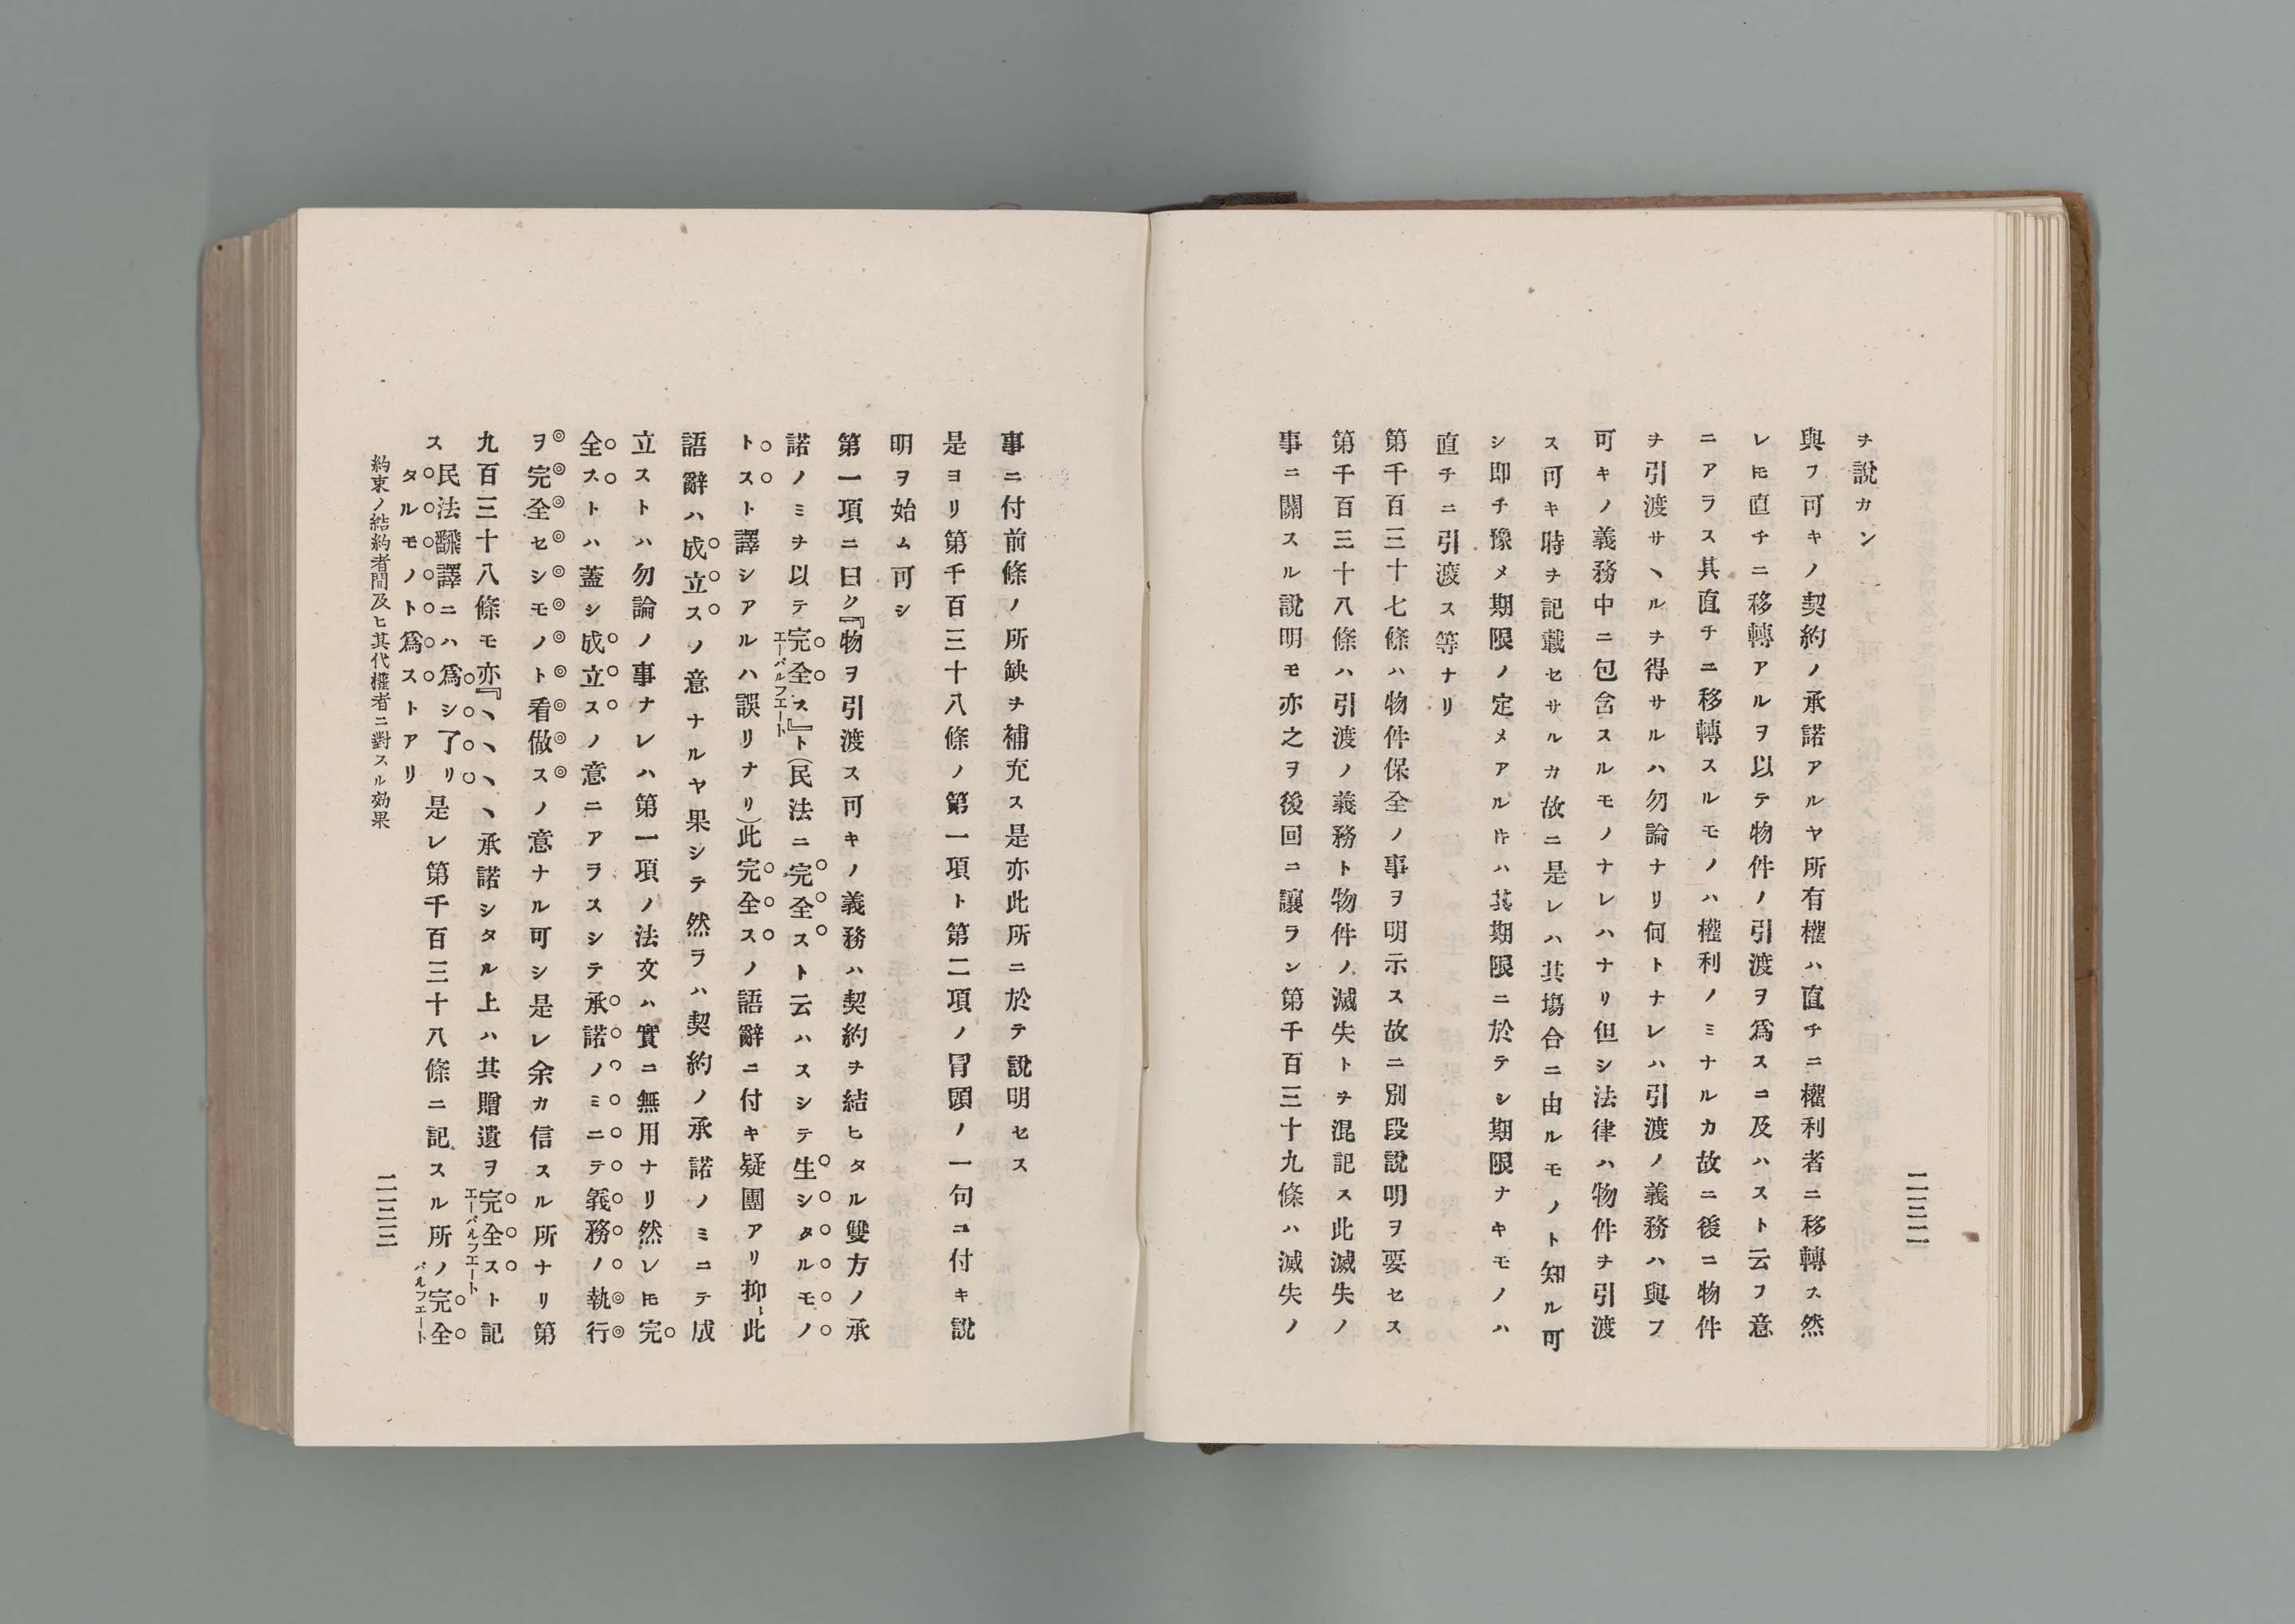 二三二
ヲ說カン
與フ可キノ契約ノ承諾アルヤ所有權ハ直チニ權利者ニ移轉ス然
レ𪜈直チニ移轉アルヲ以テ物件ノ引渡ヲ爲スコ及ハスト云フ意
ニアラス其直チニ移轉スルモノハ權利ノミナルカ故ニ後ニ物件
ヲ引渡サヽルヲ得サルハ勿論ナリ何トナレハ引渡ノ義務ハ與フ
可キノ義務中ニ包含スルモノナレハナリ但シ法律ハ物件ヲ引渡
ス可キ時ヲ記載セサルカ故ニ是レハ其塲合ニ由ルモノト知ル可
シ即チ豫メ期限ノ定メアル𪜈ハ其期限ニ於テシ期限ナキモノハ
直チニ引渡ス等ナリ
第千百三十七條ハ物件保全ノ事ヲ明示ス故ニ別段說明ヲ要セス
第千百三十八條ハ引渡ノ義務ト物件ノ滅失トヲ混記ス此滅失ノ
事ニ關スル說明モ亦之ヲ後回ニ讓ラン第千百三十九條ハ滅失ノ
事ニ付前條ノ所缺ヲ補充ス是亦此所ニ於テ說明セス
是ヨリ第千百三十八條ノ第一項ト第二項ノ冒頭ノ一句ニ付キ說
明ヲ始ム可シ
第一項ニ曰ク『物ヲ引渡ス可キノ義務ハ契約ヲ結ヒタル雙方ノ承
諾ノミヲ以テ完全エーパルフエートス』ト(民法ニ完全スト云ハスシテ生シタルモノ
トスト譯シアルハ誤リナリ)此完全スノ語辭ニ付キ疑團アリ抑、此
語辭ハ成立スノ意ナルヤ果シテ然ラハ契約ノ承諾ノミニテ成
立ストハ勿論ノ事ナレハ第一項ノ法文ハ實ニ無用ナリ然レ𪜈完
全ストハ蓋シ成立スノ意ニアラスシテ承諾ノミニテ義務ノ執行
ヲ完全セシモノト看做スノ意ナル可シ是レ余カ信スル所ナリ第
九百三十八條モ亦『、、、、承諾シタル上ハ其贈遺ヲ完全エーパルフエートスト記
ス民法飜譯ニハ爲シ了リタルモノト爲ストアリ是レ第千百三十八條ニ記スル所ノ完全パルフエート
約束ノ結約者間及ヒ其代權者ニ對スル効果
二三三